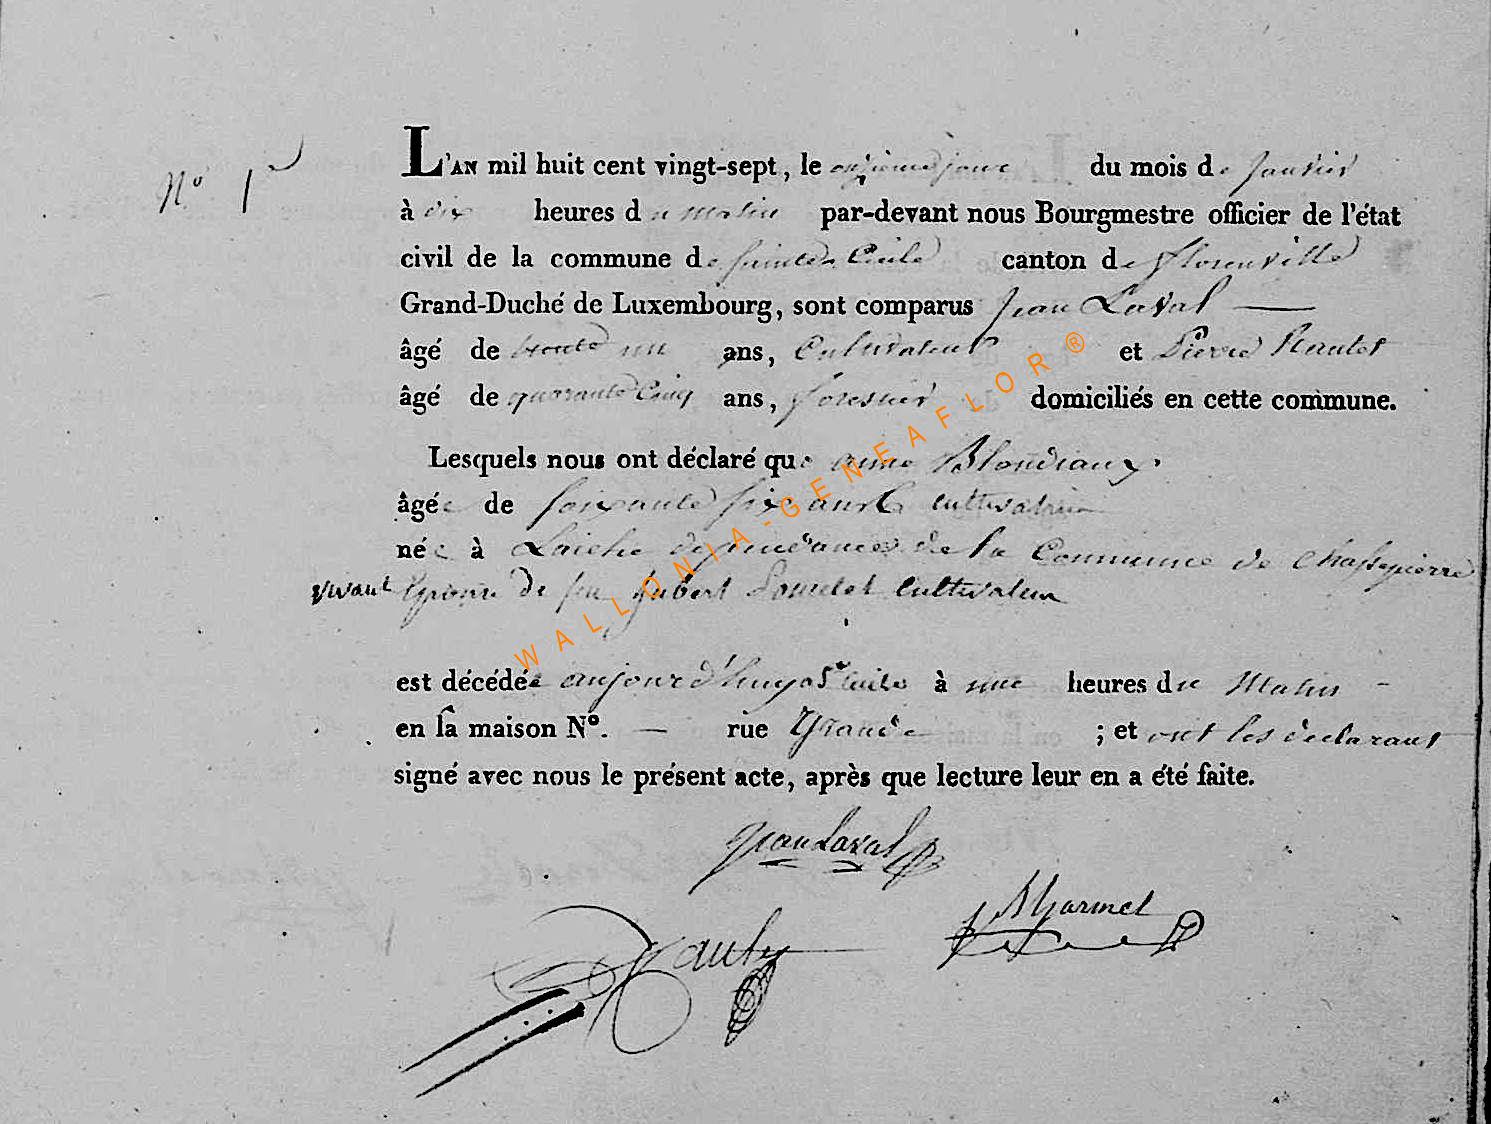 N° 1er
L'AN mil huit cent vingt-sept, le onzieme jour du mois de Janvier
à dix heures du matin par-devant nous Bourgmestre officier de l'état
civil de la commune de Sainte Cecile canton de florenville
Grand-Duché de Luxembourg, sont comparus Jean Laval
âgé de trente un ans, Cultivateur et Pierre Hautot
âgé de quarante Cinq ans, forestier domiciliés en cette commune.
Lesquels nous ont déclaré que anne Blondiaux
âgée de soixante six ans cultivatrice
née à Laiche dependance de la Commune de Chassepierre
vivant Epouse de feu hubert cultivateur
est décédée aujourd'huy à Ste Cecile à une heures du Matin
en sa maison N°. — rue Grande ; et ont les declarant
signé avec nous le présent acte, après que lecture leur en a été faite.
Jean Laval
WALLONIA-GENEAFLOR®